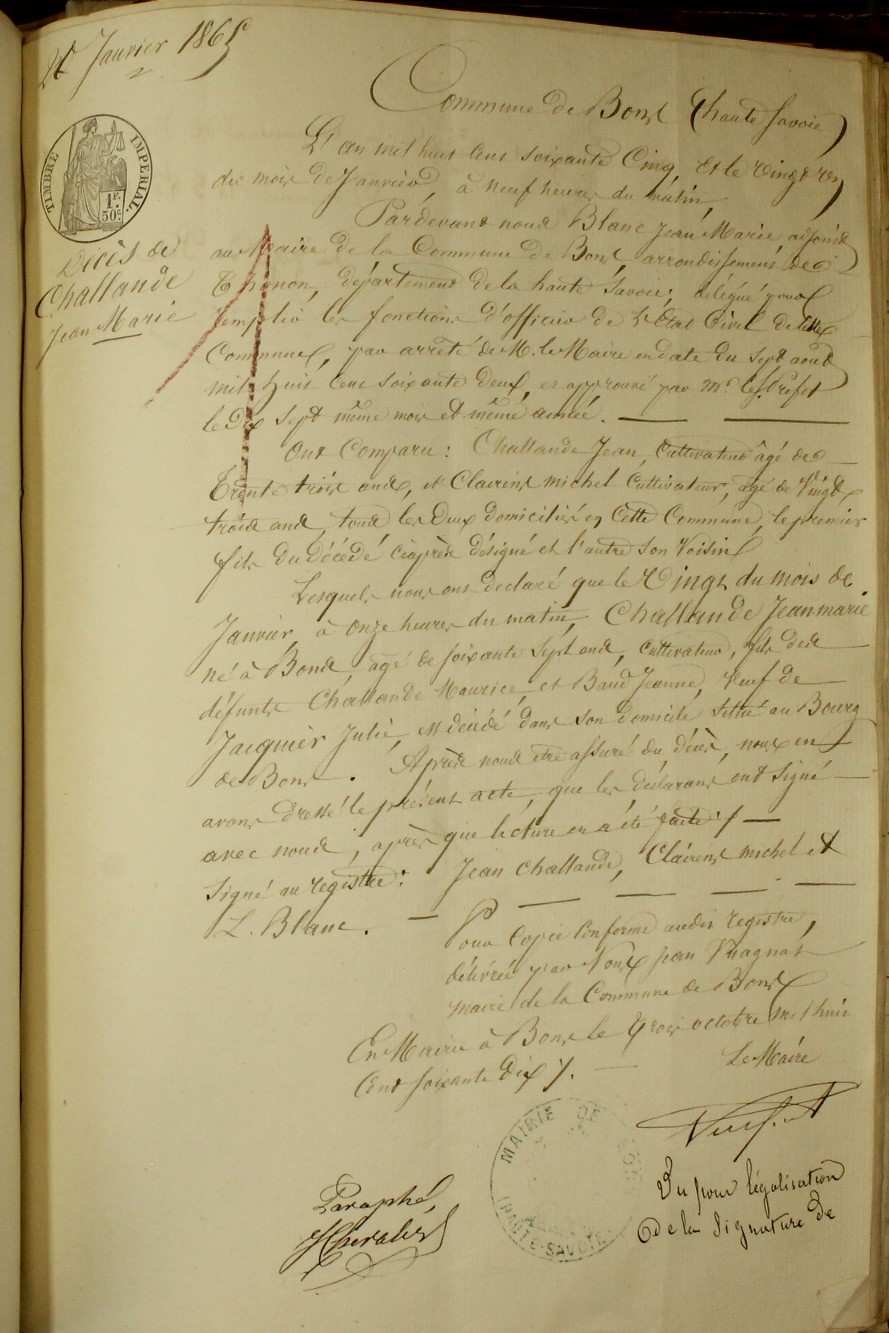 Janvier 1865
TIMBRE IMPERIAL
1F. 50c.
Décès de
Challande
Jean Marie
Commune de Bons (haute Savoie)
L'an mil huit cent soixante cinq, et le vingt
du mois de Janvier, à neuf heures du matin,
Pardevant nous Blanc Jean Marie adjoint
au Maire de la Commune de Bons, arrondissement de
Thonon, département de la haute Savoie, délégué pour
remplir les fonctions d'officier de l'Etat Civil de
Commune, par arrêté de M. le Maire en date du sept août
mil huit cent soixante deux, et approuvé par Mr le Préfet
le dix sept même mois et même année.
Ont Comparu: Challande Jean, Cultivateur âgé de
Trente trois ans, et Clairens michel Cultivateur, âgé de Vingt
trois ans, tous les deux domiciliés en Cette Commune, le premier
fils du décédé ciaprès désigné et l'autre son Voisin
Lesquels nous ont declaré que le Vingt du mois de
Janvier, à onze heures du matin, Challande Jeanmarie
né à Bons, âgé de soixante sept ans, cultivateur, fils des
défunts Challande Maurice et Baud Jeanne, veuf de
Jacquier Julie, est décédé dans son domicile situé au Bourg
de Bons. Après nous être assuré du décès, nous en
avons dressé le présent acte, que les déclarans ont signé
avec nous, après que lecture en a été faite:/
Signé au registre: Jean Challande, Clairens michel et
L. Blanc.
Pour Copie Conforme audit registre,
délivrée par Nous jean Vuagnat
maire de la Commune de Bons
En Mairie à Bons le trois octobre mil huit
Cent soixante dix 7.
Le Maire
MAIRIE DE BONS
(HAUTE-SAVOIE)
Paraphé,
Vu pour légalisation
de la signature de